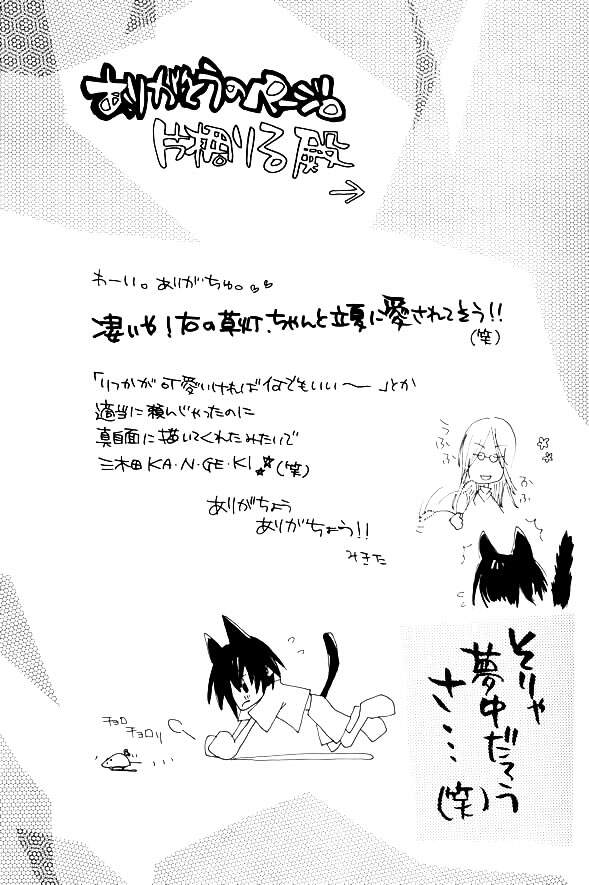 ありがとうのページ。
片桐りる殿
→
わーい。ありがちゅ。
凄いや!右の草灯、ちゃんと立夏に愛されてそう!!
(笑)
「りつかが可愛いければなでもいい～」とか
適当に頼んじゃったのに
真面目に描いてくれたみたいで
三木田KA・N・GE・KI☆(笑)
ありがちょう
ありがちょう!!
みきた
うふふ
ふふ
チョロ
チョロリ
そりゃ
夢中だてう
さ…
(笑)